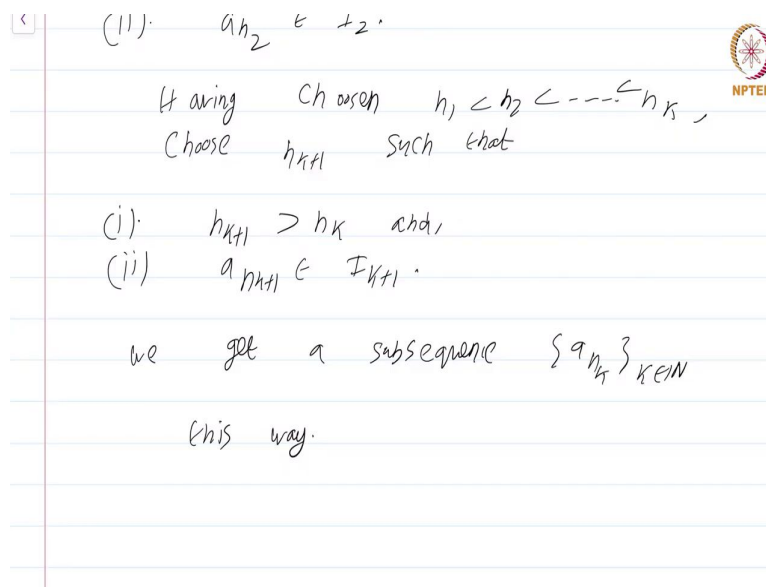 (ii). a_{n_2} ∈ I_2.
NPTEL
Having Choosen n_1 < n_2 < ----- < n_K,
Choose n_{K+1} such that
(i). n_{K+1} > n_K and,
(ii) a_{n_{K+1}} ∈ I_{K+1}.
we get a subsequence {a_{n_K}}_{K∈ℕ}
this way.